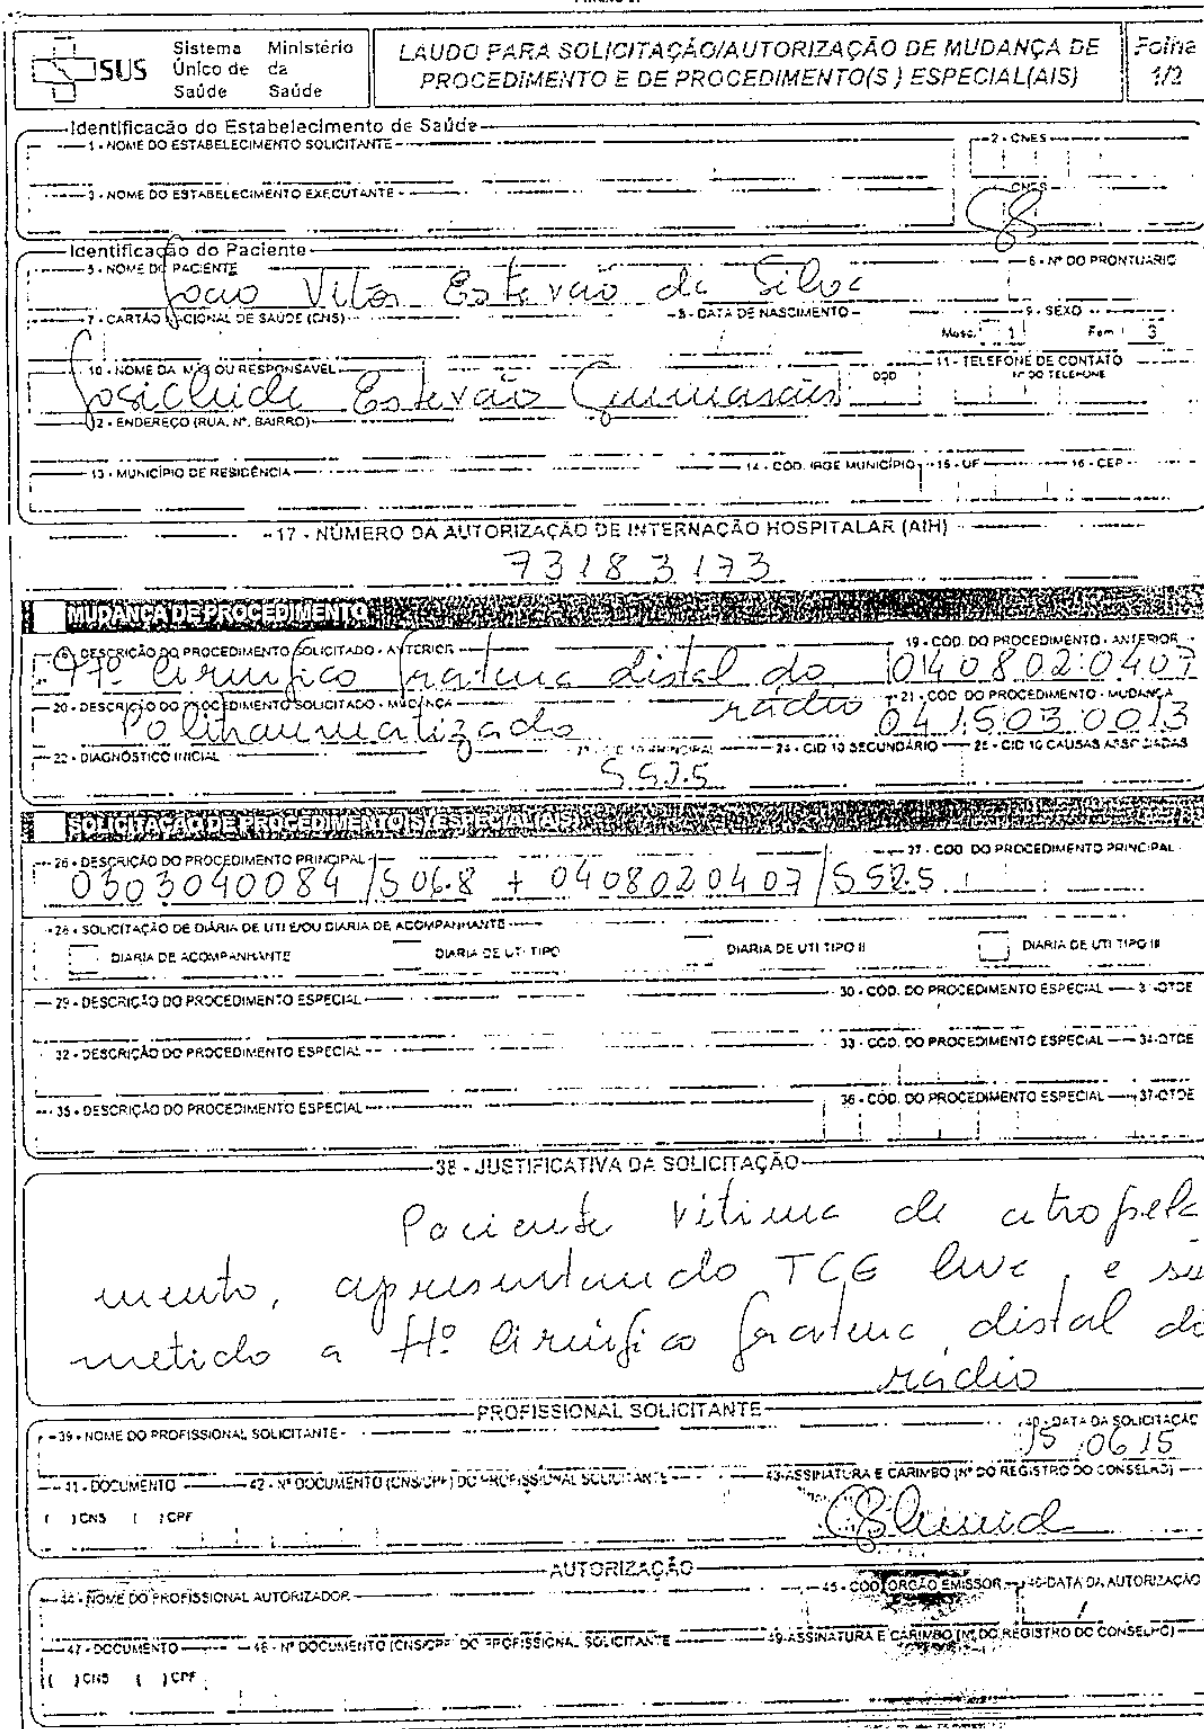 SUS
Sistema Único de Saúde
Ministério da Saúde
LAUDO PARA SOLICITAÇÃO/AUTORIZAÇÃO DE MUDANÇA DE PROCEDIMENTO E DE PROCEDIMENTO(S) ESPECIAL(AIS)
Folha 1/2
Identificação do Estabelecimento de Saúde
1 - NOME DO ESTABELECIMENTO SOLICITANTE
2 - CNES
3 - NOME DO ESTABELECIMENTO EXECUTANTE
CNES
Identificação do Paciente
5 - NOME DO PACIENTE
6 - Nº DO PRONTUÁRIO
João Vitor Estevão da Silva
7 - CARTÃO NACIONAL DE SAÚDE (CNS)
8 - DATA DE NASCIMENTO
9 - SEXO
Masc. 1 Fem 3
10 - NOME DA MÃE OU RESPONSÁVEL
11 - TELEFONE DE CONTATO
DDD Nº DO TELEFONE
Josicleide Estevão Guimarães
12 - ENDEREÇO (RUA, Nº, BAIRRO)
13 - MUNICÍPIO DE RESIDÊNCIA
14 - CÓD. IBGE MUNICÍPIO
15 - UF
16 - CEP
17 - NÚMERO DA AUTORIZAÇÃO DE INTERNAÇÃO HOSPITALAR (AIH)
73183173
MUDANÇA DE PROCEDIMENTO
DESCRIÇÃO DO PROCEDIMENTO SOLICITADO - ANTERIOR
19 - CÓD. DO PROCEDIMENTO - ANTERIOR
ttº cirúrgico fratura distal do rádio
0408020407
20 - DESCRIÇÃO DO PROCEDIMENTO SOLICITADO - MUDANÇA
21 - CÓD. DO PROCEDIMENTO - MUDANÇA
Politraumatizado
0415030013
22 - DIAGNÓSTICO INICIAL
23 - CID 10 PRINCIPAL
24 - CID 10 SECUNDÁRIO
25 - CID 10 CAUSAS ASSOCIADAS
S52.5
SOLICITAÇÃO DE PROCEDIMENTO(S) ESPECIAL(AIS)
26 - DESCRIÇÃO DO PROCEDIMENTO PRINCIPAL
27 - CÓD. DO PROCEDIMENTO PRINCIPAL
0303040084 / S06.8 + 0408020407 / S52.5
28 - SOLICITAÇÃO DE DIÁRIA DE UTI E/OU DIÁRIA DE ACOMPANHANTE
DIÁRIA DE ACOMPANHANTE
DIÁRIA DE UTI TIPO
DIÁRIA DE UTI TIPO II
DIÁRIA DE UTI TIPO III
29 - DESCRIÇÃO DO PROCEDIMENTO ESPECIAL
30 - CÓD. DO PROCEDIMENTO ESPECIAL
31 - QTDE
32 - DESCRIÇÃO DO PROCEDIMENTO ESPECIAL
33 - CÓD. DO PROCEDIMENTO ESPECIAL
34 - QTDE
35 - DESCRIÇÃO DO PROCEDIMENTO ESPECIAL
36 - CÓD. DO PROCEDIMENTO ESPECIAL
37 - QTDE
38 - JUSTIFICATIVA DA SOLICITAÇÃO
Paciente vitima de atropela
mento, apresentando TCE leve, e su
metido a ttº cirúrgico fratura distal do
rádio
PROFISSIONAL SOLICITANTE
39 - NOME DO PROFISSIONAL SOLICITANTE
40 - DATA DA SOLICITAÇÃO
15 06 15
41 - DOCUMENTO
42 - Nº DOCUMENTO (CNS/CPF) DO PROFISSIONAL SOLICITANTE
43 - ASSINATURA E CARIMBO (Nº DO REGISTRO DO CONSELHO)
( ) CNS ( ) CPF
AUTORIZAÇÃO
44 - NOME DO PROFISSIONAL AUTORIZADOR
45 - COD ORGÃO EMISSOR
46 - DATA DA AUTORIZAÇÃO
47 - DOCUMENTO
48 - Nº DOCUMENTO (CNS/CPF DO PROFISSIONAL SOLICITANTE
49 - ASSINATURA E CARIMBO (Nº DO REGISTRO DO CONSELHO)
( ) CNS ( ) CPF